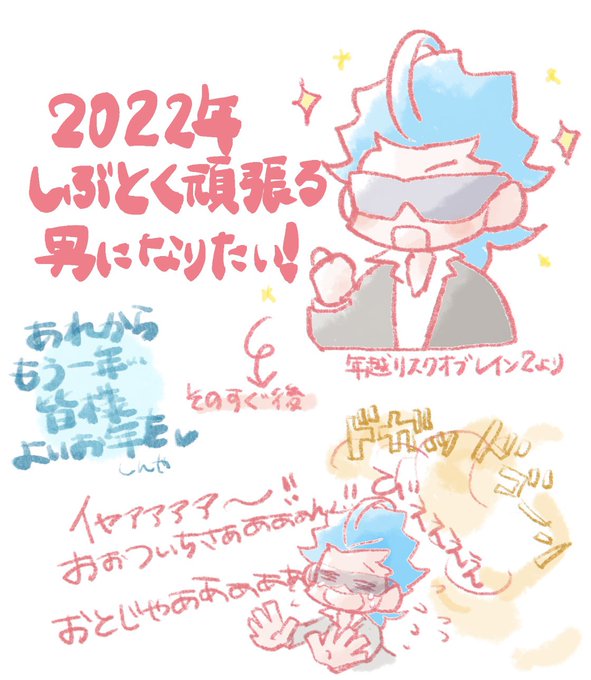 2022年
しぶとく頑張る
男になりたい!
年越リスクオブレイン2より
そのすぐ後
あれから
もう一年…
皆様
よいお年を♥
しんや
ドガッッ
ドン
イヤアアアア〜!!
おぉついちさぁあぁぁんぐ
ええええん
おとじゃあああああ